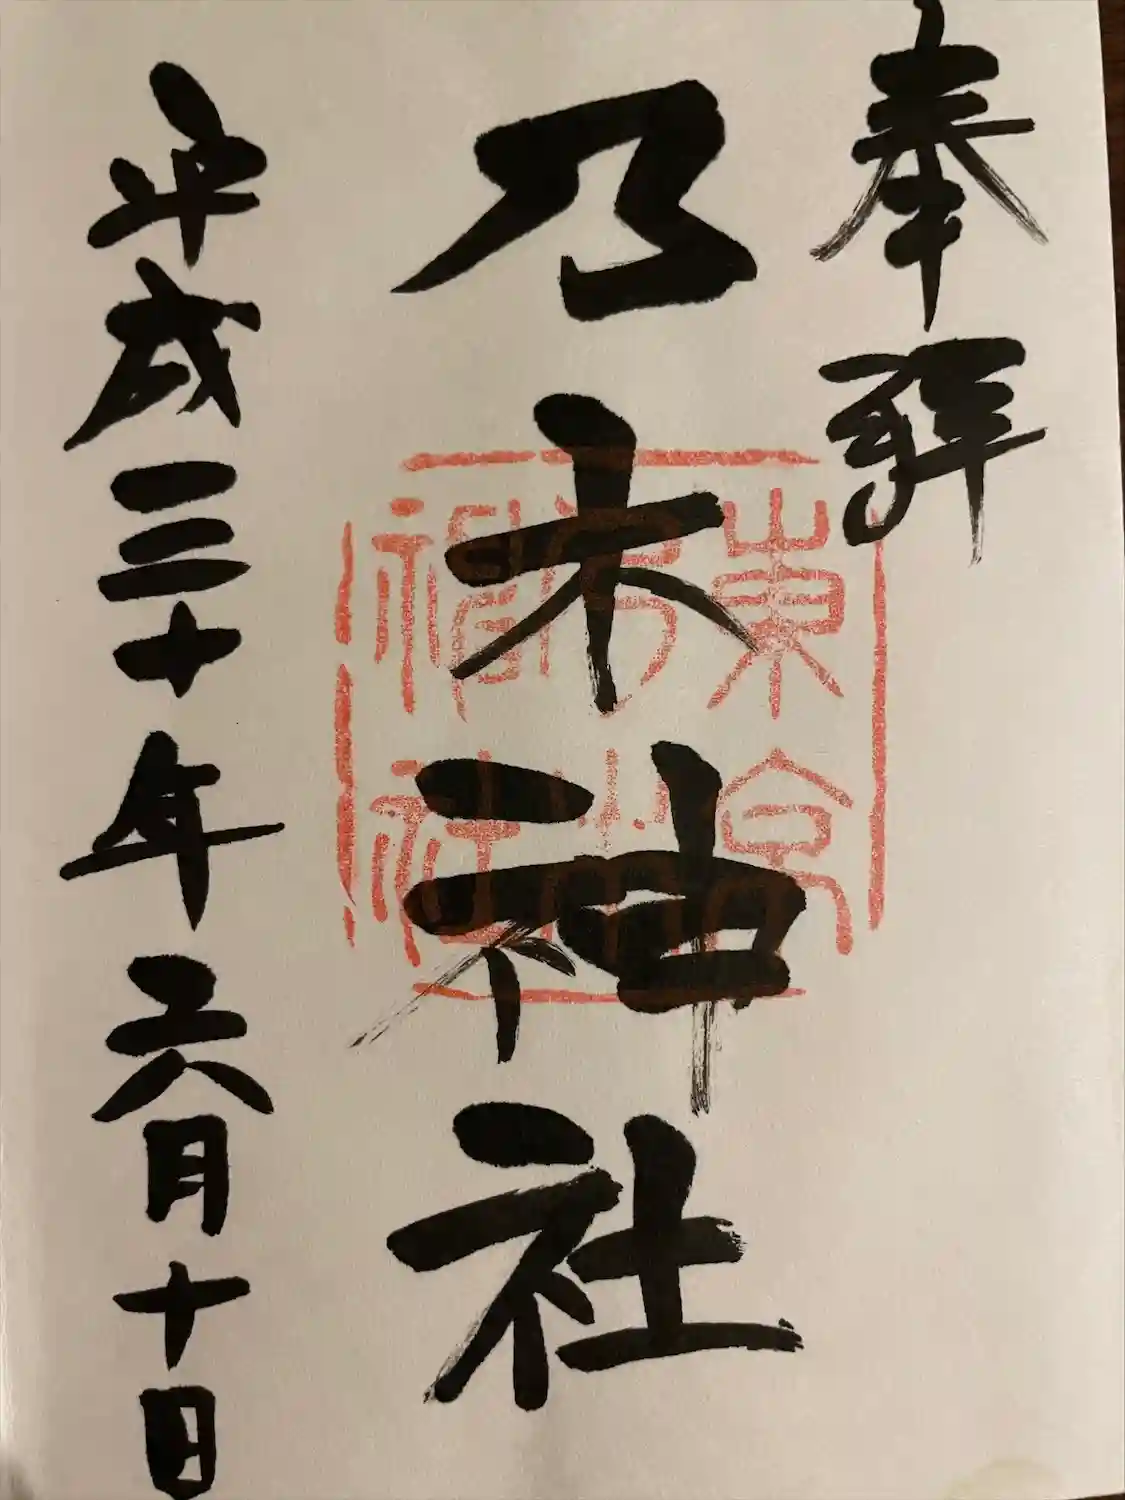 奉拝
乃木神社
東京
乃木
神社
平成三十年六月十日